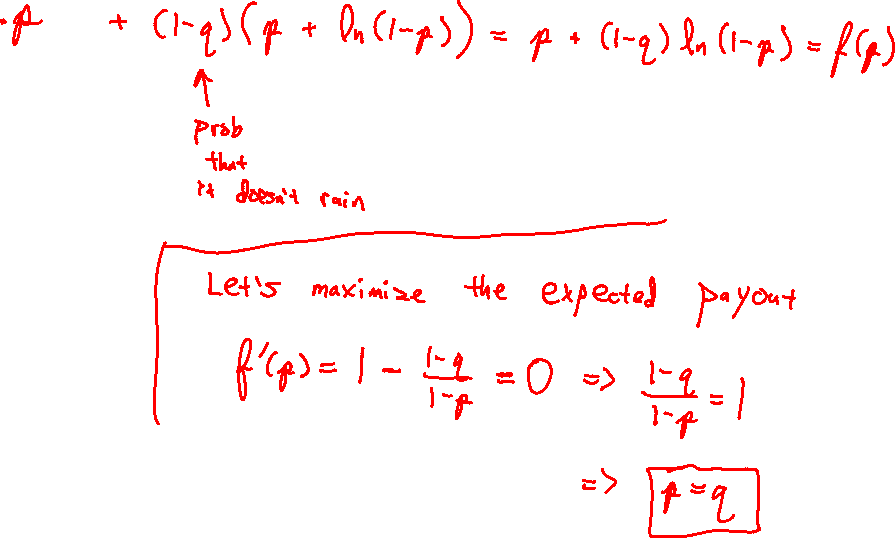 ·p + (1-q)(p + ln(1-p)) = p + (1-q) ln(1-p) = f(p)
↑
prob
that
it doesn't rain
Let's maximize the expected payout
f'(p) = 1 - \frac{1-q}{1-p} = 0 => \frac{1-q}{1-p} = 1
=> p = q